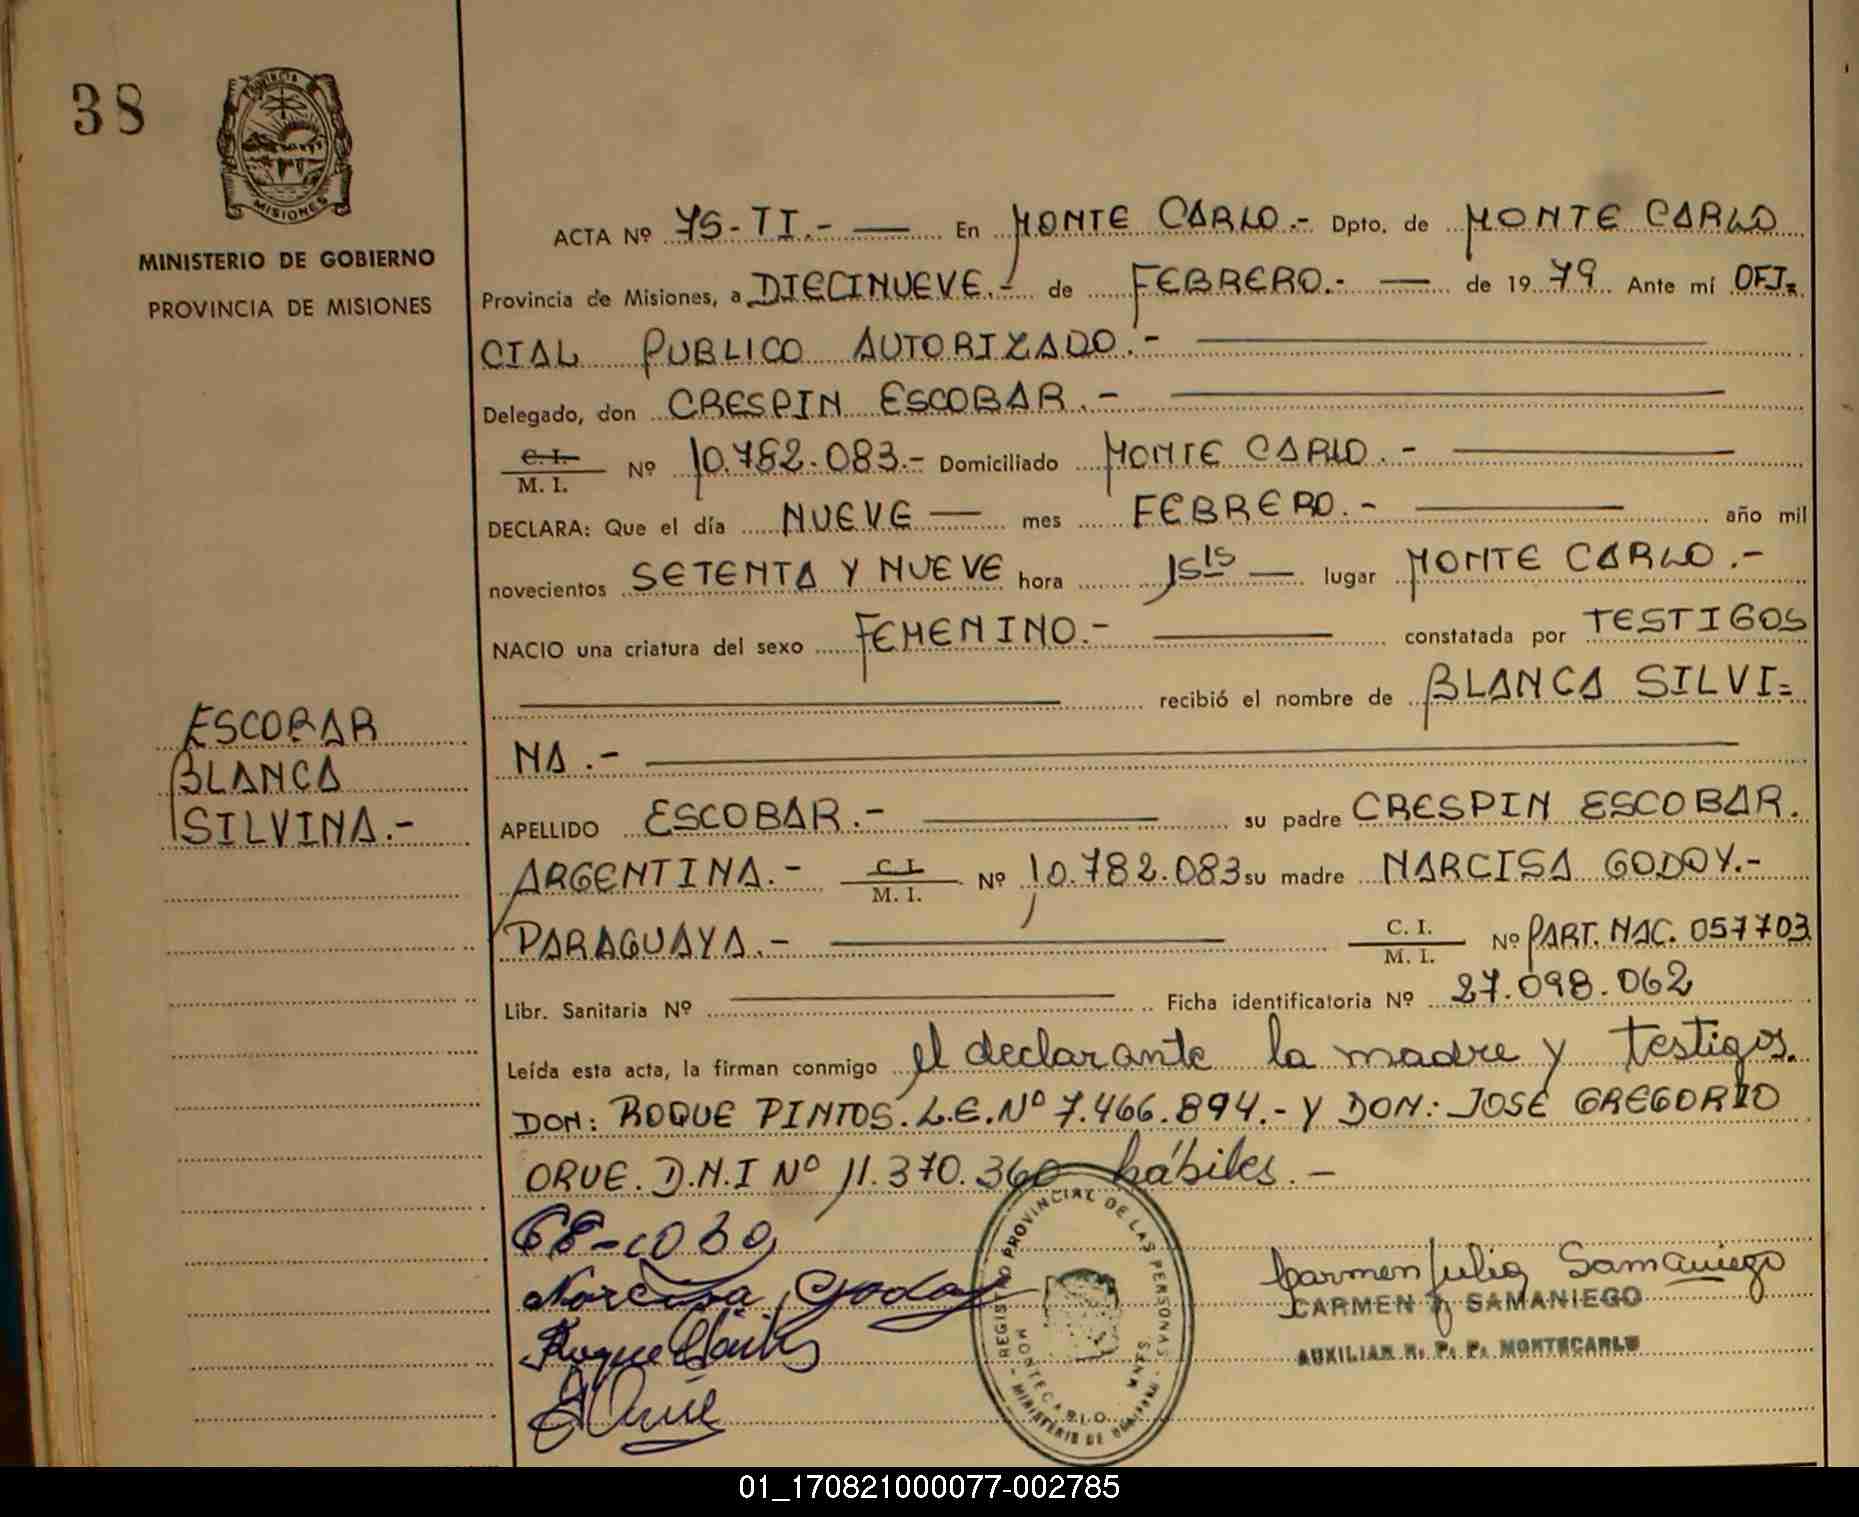 38
Provincia
MISIONES
MINISTERIO DE GOBIERNO
PROVINCIA DE MISIONES
ESCOBAR
BLANCA
SILVINA.-
ACTA Nº 75-TI.- En MONTE CARLO.- Dpto. de MONTE CARLO
Provincia de Misiones, a DIECINUEVE.- de FEBRERO.- de 19 79 Ante mí OFI=
CIAL PUBLICO AUTORIZADO.-
Delegado, don CRESPIN ESCOBAR.-
C. I.
M. I. Nº 10.782.083.- Domiciliado MONTE CARLO.-
DECLARA: Que el día NUEVE mes FEBRERO.- año mil
novecientos SETENTA Y NUEVE hora 15 15 lugar MONTE CARLO.-
NACIO una criatura del sexo FEMENINO.- constatada por TESTIGOS
recibió el nombre de BLANCA SILVI=
NA.-
APELLIDO ESCOBAR.- su padre CRESPIN ESCOBAR.
ARGENTINA.- C. I. M. I. Nº 10.782.083 su madre NARCISA GODOY.-
PARAGUAYA.- C. I. M. I. Nº PART. NAC. 057703
Libr. Sanitaria Nº Ficha identificatoria Nº 27.098.062
Leída esta acta, la firman conmigo el declarante la madre y testigos.
DON: ROQUE PINTOS. L.E. Nº 7.466.894.- Y DON: JOSE GREGORIO
ORUE. D.N.I Nº 11.370.360 hábiles.-
Narcisa Godoy
Roque
REGISTRO PROVINCIAL DE LAS PERSONAS
MONTECARLO MNES
MINISTERIO DE GOBIERNO
Carmen Julia Samaniego
CARMEN J. SAMANIEGO
AUXILIAR R. P. P. MONTECARLO
01_170821000077-002785